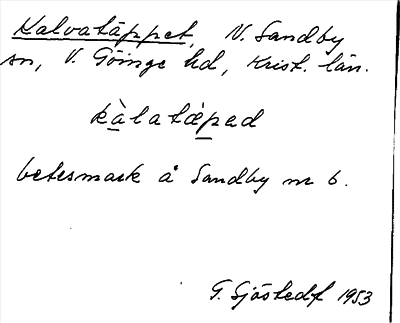 Kalvatäppet, N. Sandby
sn, V. Göinge hd, Krist. län.
kàlatæped
betesmark å Sandby nr 6.
G. Sjöstedt 1953